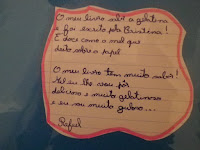 O meu livro sabe a gelatina
e foi escrito pela Cristina!
É doce como o mel que
deito sobre o papel.
O meu livro tem muito sabor!
Mel eu lhe vou pôr
delicioso e muito gelatinoso
e eu sou muito guloso...
Rafael